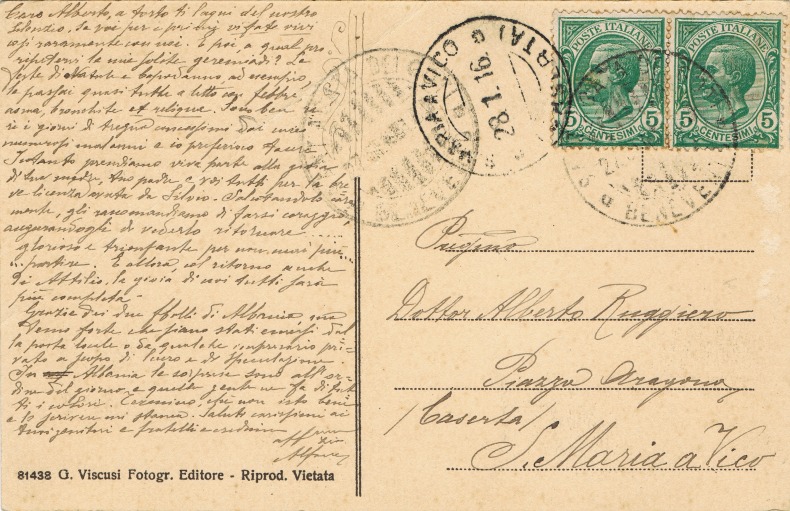 Caro Alberto, a torto ti lagni del nostro
silenzio. Se voi per i primi vi fate vivi
così raramente con noi. E poi, a qual pro
ripetervi le mie solite geremiadi? Le
feste di Natale e capodanno ad esempio,
le passai quasi tutte a letto con febbre,
asma, bronchite et reliqua. Sono ben ra
ri i giorni di tregua concessimi dai miei
numerosi malanni e io preferisco tacere.
Intanto prendiamo viva parte alla gioia
di tua madre, tuo padre e voi tutti per la bre
ve licenza avuta da Silvio. Salutandolo cara
mente, gli raccomandiamo di farsi coraggio
augurandogli di vederlo ritornare .....
glorioso e trionfante per non mai più
partire. E allora, col ritorno anche
di Attilio, la gioia di voi tutti sarà
più completa.
Grazie dei due fbolli di Albania ma
temo forte che siano stati emessi dal
la posta locale o da qualche impresario pri-
vato a scopo di lucro e di speculazione.
In Albania le sorprese sono all'or-
dine del giorno, e quella gente ne fa di tut
ti i colori. non sta bene
e lo scrivere mi stanca. Saluti carissimi ai
tuoi genitori e fratelli e credimi
aff zio
Alfonso
81438 G. Viscusi Fotogr. Editore - Riprod. Vietata
POSTE ITALIANE
5 CENTESIMI 5
POSTE ITALIANE
5 CENTESIMI 5
S. MARIA A VICO (CASERTA)
28.1.16
BENEVE
BENEVE
Dottor Alberto Ruggiero
Piazza Aragona
(Caserta)
S. Maria a Vico